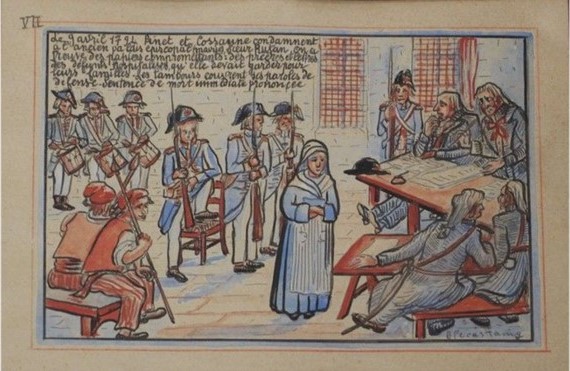 VII
Le 9 avril 1794 Pinet et condamnent
à l'ancien palais épiscopal Sœur Rutan, on a
trouvé des papiers compromettants des prêtres et lettres
des défunts hospitalisés qu'elle devait garder pour
leurs familles. Les tambours couvrent les paroles de
défense. Sentence de mort immédiate prononcée